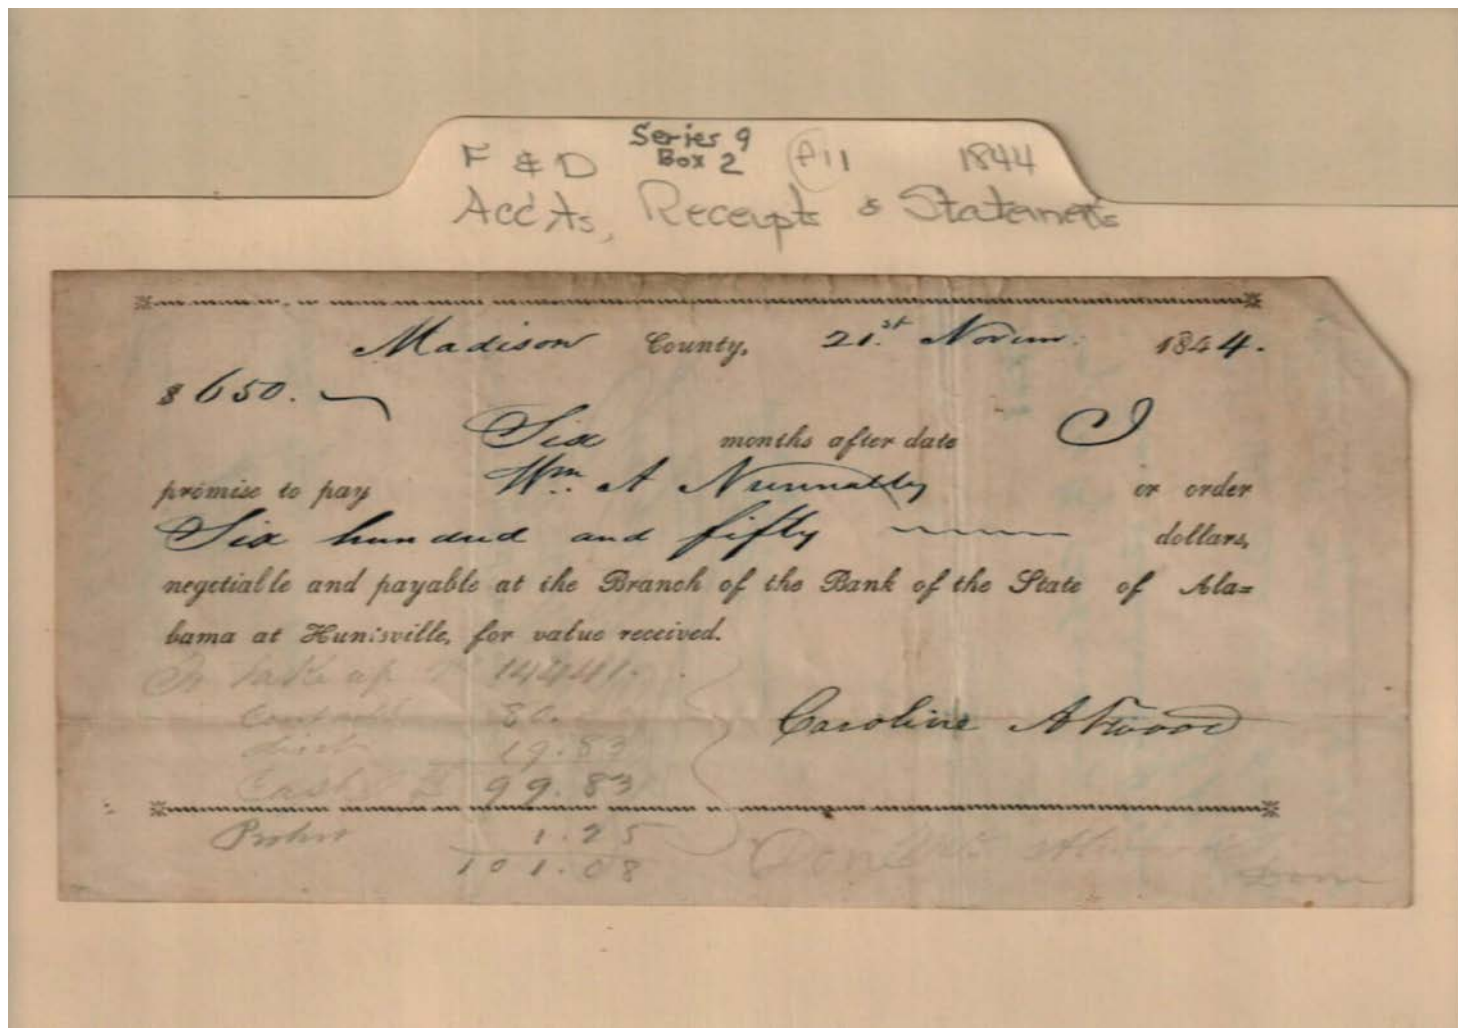 Series 9
F & D Box 2 1844
Acc'ts, Receipts & Statements
Madison County, 21st Novem. 1844.
$650.
Six months after date I
promise to pay Wm. A Nunnally or order
Six hundred and fifty dollars,
negotiable and payable at the Branch of the Bank of the State of Ala=
bama at Huntsville, for value received.
To take up 14441.
80.
19.83
Cash 99.83
Caroline Atwood
1.25
101.08
Done